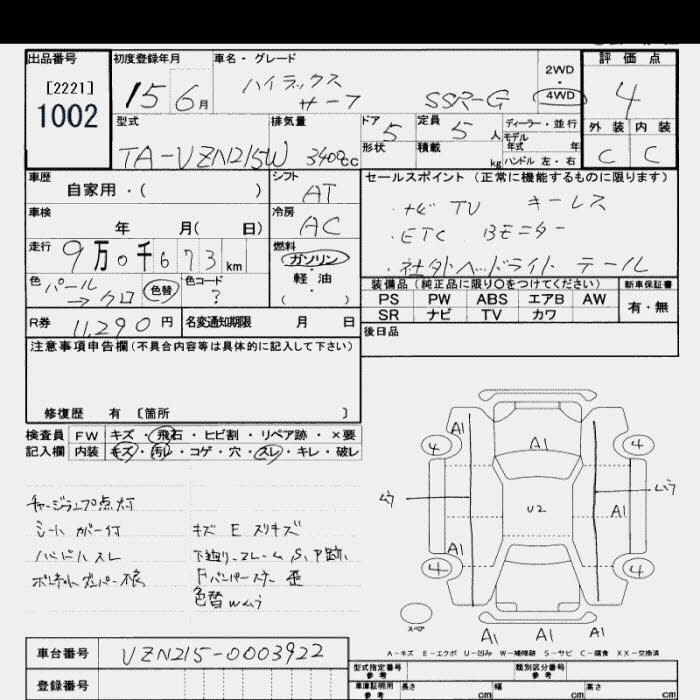 出品番号 初度登録年月 車名・グレード 2WD ・ 4WD 評価点
[2221] 1002 15 6月 ハイラックス サーフ SSR-G 4
型式 排気量 ドア 5 定員 5人 ディーラー・並行 外装 内装
TA-VZN215W 3400cc 形状 積載 kg モデル年式 年 ハンドル 左・右 C C
車歴 シフト セールスポイント (正常に機能するものに限ります)
自家用・( ) AT ・ナビ TV キーレス
車検 冷房 ・ETC Bモニター
年 月( 日) AC ・社外ヘッドライト テール
走行 燃料
9万0千673km ガソリン・軽油 ( )
色 パール→クロ 色替 色コード ?
装備品 (純正品に限り○をつけてください) 新車保証書
PS PW ABS エアB AW 有・無
SR ナビ TV カワ
R券 11,290円 名変通知期限 月 日
後日品
注意事項申告欄(不具合内容等は具体的に記入して下さい)
修復歴 有 [箇所 ]
検査員 FW キズ・飛石・ヒビ割・リペア跡・×要
記入欄 内装 キズ・汚レ・コゲ・穴・スレ・キレ・破レ
チャージランプ点灯
シートカバー付 キズ E スリキズ
ハンドルスレ 下廻り、フレーム S、P跡
ボンネットダンパー不良 Fバンパーステー 歪
色替Wムラ
A1 A1 A1
4 4
ムラ U2 ムラ
A1
A1
4 4
スペア
A1 A1 A1
A-キズ E-エクボ U-凹み W-補修跡 S-サビ C-腐食 XX-交換済
車台番号 VZN215-0003922
型式指定番号 参考 類別区分番号 参考
登録番号
車庫証明用 参考 長さ cm 幅 cm 高さ cm